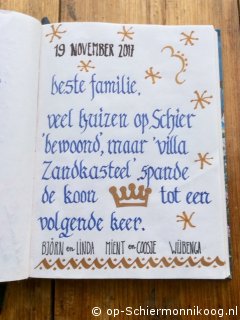 19 NOVEMBER 2017
beste familie,
veel huizen op Schier
'bewoond', maar 'villa
Zandkasteel' spande
de koon tot een
volgende keer.
BJÖRN en LINDA MIENT en COOSJE WIJBENGA
© op-Schiermonnikoog.nl